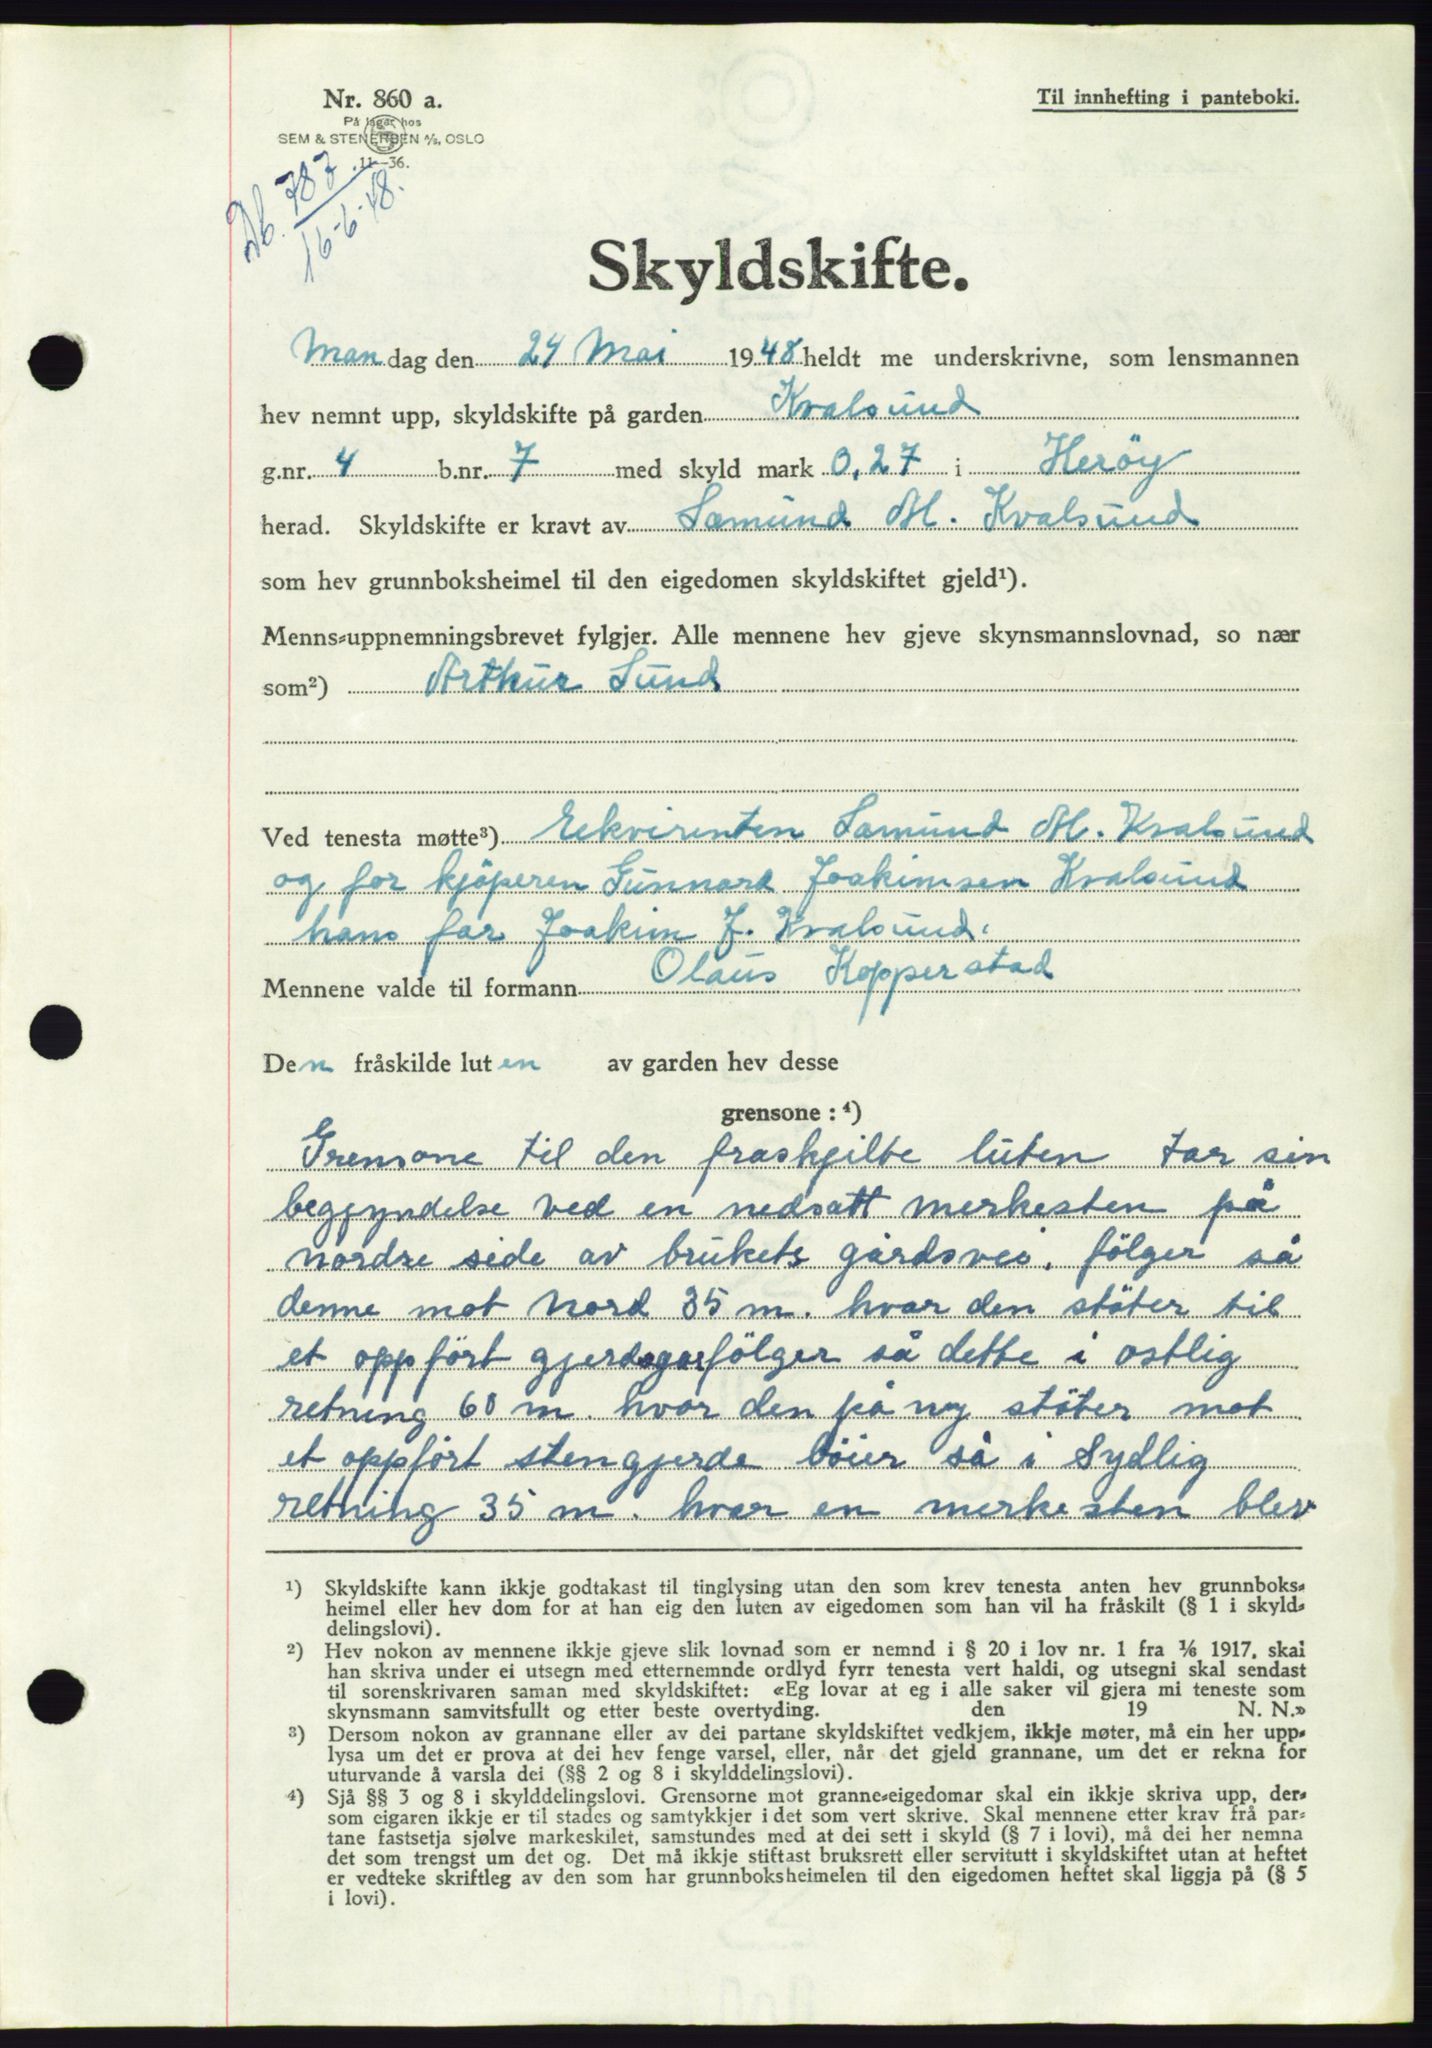 Nr. 860 a.
Til innhefting i panteboki.
På lager hos
SEM & STENERSEN A/S, OSLO
11—36.
Db. 787
16-6-48.
Skyldskifte.
Mandag den 24 Mai 1948 heldt me underskrivne, som lensmannen
hev nemnt upp, skyldskifte på garden Kvalsund
g.nr. 4 b.nr. 7 med skyld mark 0,27 i Herøy
herad. Skyldskifte er kravt av Samund M. Kvalsund
som hev grunnboksheimel til den eigedomen skyldskiftet gjeld¹).
Menns-uppnemningsbrevet fylgjer. Alle mennene hev gjeve skynsmannslovnad, so nær
som²) Arthur Sund
Ved tenesta møtte³) rekvirenten Samund M. Kvalsund
og for kjöperen Gunnard Joakimsen Kvalsund
hans far Joakim J. Kvalsund.
Mennene valde til formann Olaus Kopperstad
Den fråskilde luten av garden hev desse
grensone :⁴)
Grensone til den fraskjilte luten tar sin
beggyndelse ved en nedsatt merkesten på
nordre side av brukets gårdsvei, fölger så
denne mot Nord 35 m. hvor den stöter til
et oppfört gjerdsgar fölger så dette i ostlig
retning 60 m. hvor den på ny stöter mot
et oppfört stengjerde böier så i Sydlig
retning 35 m. hvor en merkesten blev
¹) Skyldskifte kann ikkje godtakast til tinglysing utan den som krev tenesta anten hev grunnboks-
heimel eller hev dom for at han eig den luten av eigedomen som han vil ha fråskilt (§ 1 i skyld-
delingslovi).
²) Hev nokon av mennene ikkje gjeve slik lovnad som er nemnd i § 20 i lov nr. 1 fra 1/6 1917, skal
han skriva under ei utsegn med etternemnde ordlyd fyrr tenesta vert haldi, og utsegni skal sendast
til sorenskrivaren saman med skyldskiftet: «Eg lovar at eg i alle saker vil gjera mi teneste som
skynsmann samvitsfullt og etter beste overtyding. den 19 N. N.»
³) Dersom nokon av grannane eller av dei partane skyldskiftet vedkjem, ikkje møter, må ein her upp-
lysa um det er prova at dei hev fenge varsel, eller, når det gjeld grannane, um det er rekna for
uturvande å varsla dei (§§ 2 og 8 i skylddelingslovi).
⁴) Sjå §§ 3 og 8 i skylddelingslovi. Grensorne mot granne-eigedomar skal ein ikkje skriva upp, der-
som eigaren ikkje er til stades og samtykkjer i det som vert skrive. Skal mennene etter krav frå par-
tane fastsetja sjølve markeskilet, samstundes med at dei sett i skyld (§ 7 i lovi), må dei her nemna
det som trengst um det og. Det må ikkje stiftast bruksrett eller servitutt i skyldskiftet utan at heftet
er vedteke skriftleg av den som har grunnboksheimelen til den eigedomen heftet skal liggja på (§ 5
i lovi).